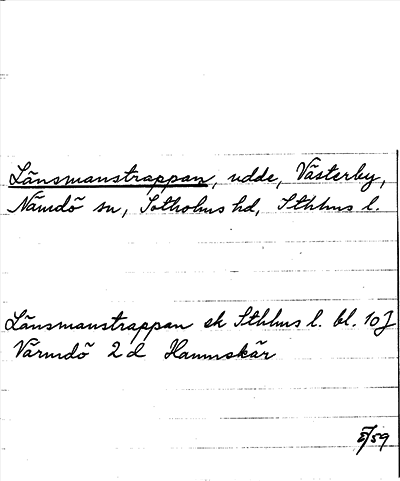 Länsmanstrappan, udde, Västerby,
Nämdö sn, Sotholms hd, Sthlms l.
Länsmanstrappan ek Sthlms l. bl. 10J
Värmdö 2d Hammskär
/59